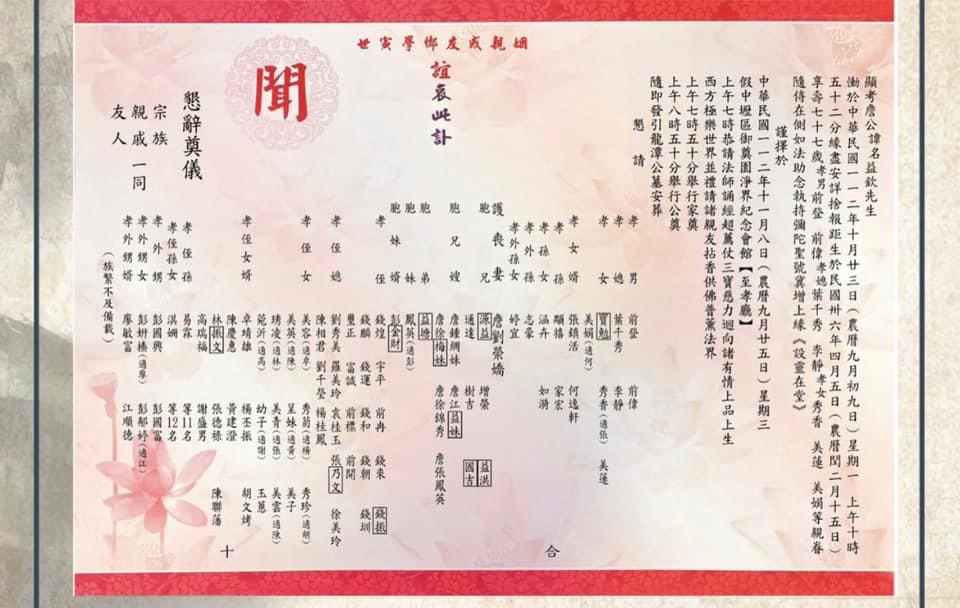 顯考詹公諱名益欽先生
慟於中華民國一一二年十月廿三日（農曆九月初九日）星期一 上午十時
五十二分緣盡安詳捨報距生於民國卅六年四月五日（農曆閏二月十五日）
享壽七十七歲孝男前登 前偉孝媳葉千秀 李靜孝女秀香 美蓮 美娟等親眷
隨侍在側如法助念執持彌陀聖號冀增上緣《設靈在堂》
謹擇於
中華民國一一二年十一月八日（農曆九月廿五日）星期三
假中壢區御奠園淨界紀念會館【至孝廳】
上午七時恭請法師誦經超薦仗三寶慈力迴向諸有情上品上生
西方極樂世界並禮請諸親友拈香供佛普薰法界
上午七時五十分舉行家奠
上午八時五十分舉行公奠
隨即發引龍潭公墓安葬
懇 請
姻親戚友鄉學寅世
誼哀此訃
聞
孝男 前登 前偉
孝媳 葉千秀 李靜
孝女 寶勉 秀香（適張） 美蓮
美娟（適何）
孝女婿 張鎮活 何逸軒
孝孫 顯禧 家宏
孝孫女 涵卉 如漪
孝外孫 志豪
孝外孫女 婷宜
護喪妻 詹劉榮嬌
胞兄 源益 增榮 益洪
通達 樹吉 國吉
胞兄嫂 詹鍾綢妹 詹江益妹
詹徐梅妹 詹徐錦秀 詹張鳳英
胞弟 益塘
胞妹 鳳英（適彭）
胞妹婿 彭金財
孝侄 錢煌 宇平 前冉 錢來 錢振
錢麟 錢運 錢和 錢朝 錢圳
璽正 富誠 前標 前開
孝侄媳 劉秀美 羅美玲 袁桂玉 張乃文 徐美玲
陳相君 劉千瑩 楊桂鳳
孝侄女 美容（適卓） 秀菊（適楊） 秀珍（適胡）
美英（適陳） 呈妹（適黃） 美子
琇凌（適林） 美青（適張） 美雲（適陳）
範沂（適高） 幼子（適謝） 玉蕙
孝侄女婿 卓靖雄 楊丕振 胡文烤
陳慶惠 黃建澄
林振文 張德椽 陳聯藩
高瑞福 謝盛男
孝侄孫 易霖 等11名
孝侄孫女 淇姍 等12名
孝外甥 彭國興 彭國富
孝外甥女 彭姸榛（適廖） 彭郁婷（適江）
孝外甥婿 廖敏富 江順德
（族繁不及備載）
懇辭奠儀
宗族
親戚一同
友人
合 十